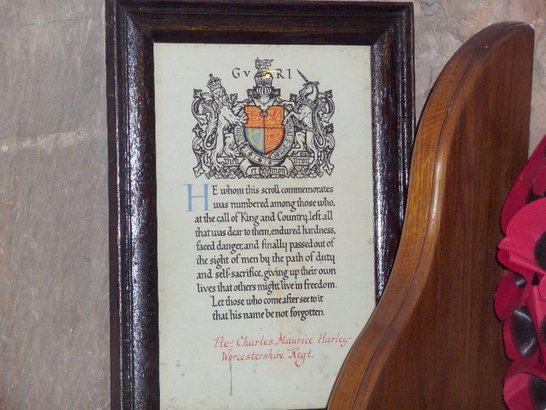 GV RI
HE whom this scroll commemorates
was numbered among those who,
at the call of King and Country, left all
that was dear to them, endured hardness,
faced danger, and finally passed out of
the sight of men by the path of duty
and self-sacrifice, giving up their own
lives that others might live in freedom.
Let those who come after see to it
that his name be not forgotten.
Pte. Charles Maurice Harley
Worcestershire Regt.